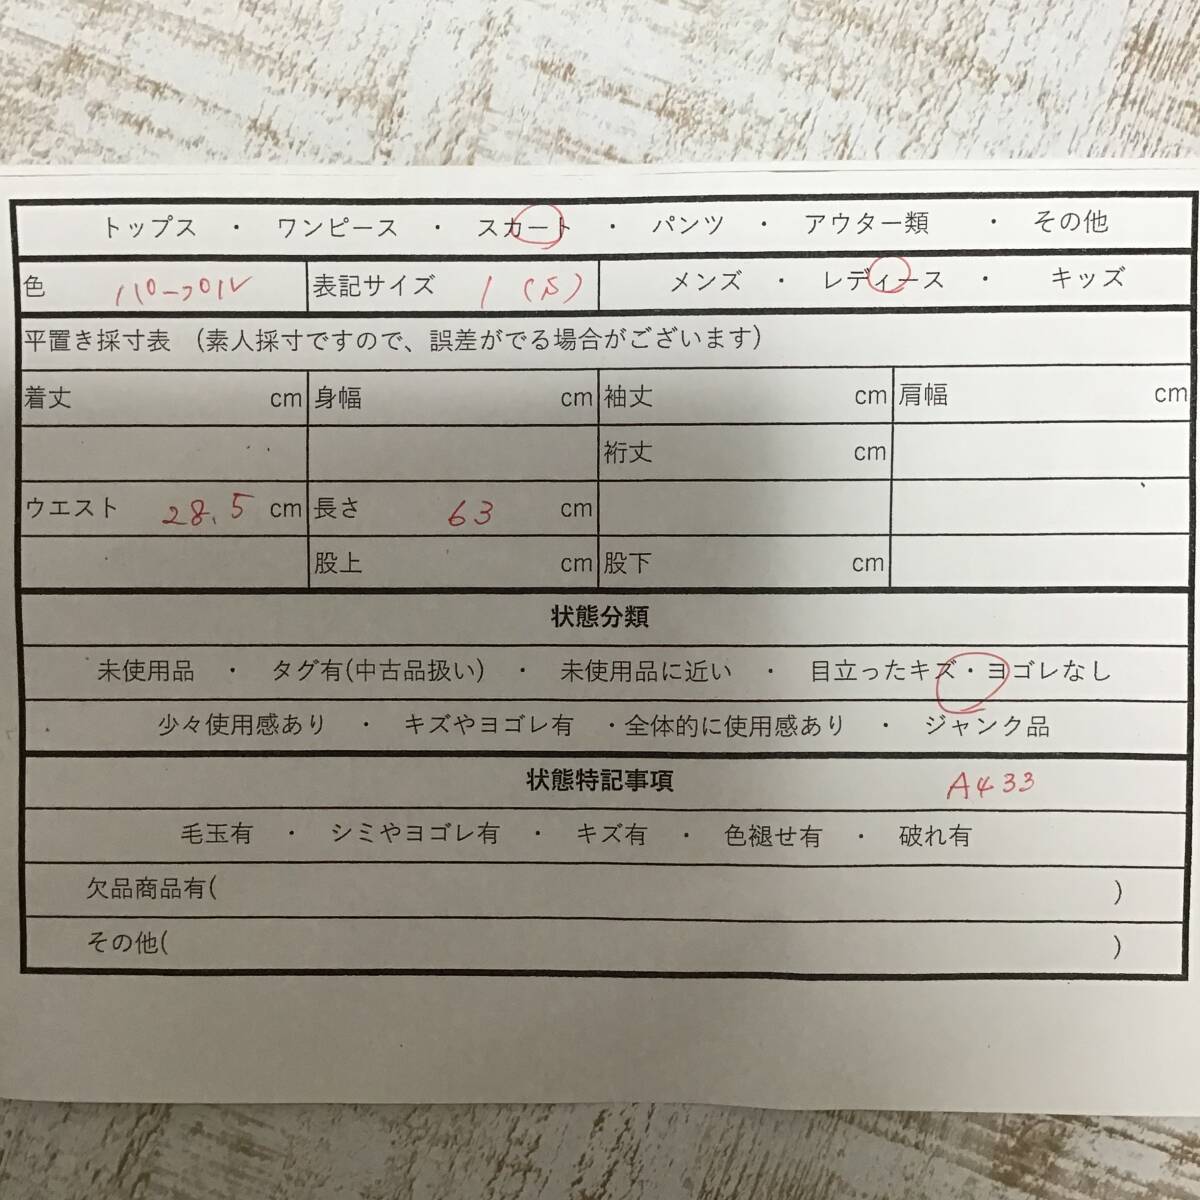 トップス ・ ワンピース ・ スカート ・ パンツ ・ アウター類 ・ その他
色 パローブルル 表記サイズ 1 (S) メンズ ・ レディース ・ キッズ
平置き採寸表 (素人採寸ですので、誤差がでる場合がございます)
着丈 cm 身幅 cm 袖丈 cm 肩幅 cm
裄丈 cm
ウエスト 28.5 cm 長さ 63 cm
股上 cm 股下 cm
状態分類
未使用品 ・ タグ有(中古品扱い) ・ 未使用品に近い ・ 目立ったキズ・ヨゴレなし
少々使用感あり ・ キズやヨゴレ有 ・全体的に使用感あり ・ ジャンク品
状態特記事項 A433
毛玉有 ・ シミやヨゴレ有 ・ キズ有 ・ 色褪せ有 ・ 破れ有
欠品商品有( )
その他( )